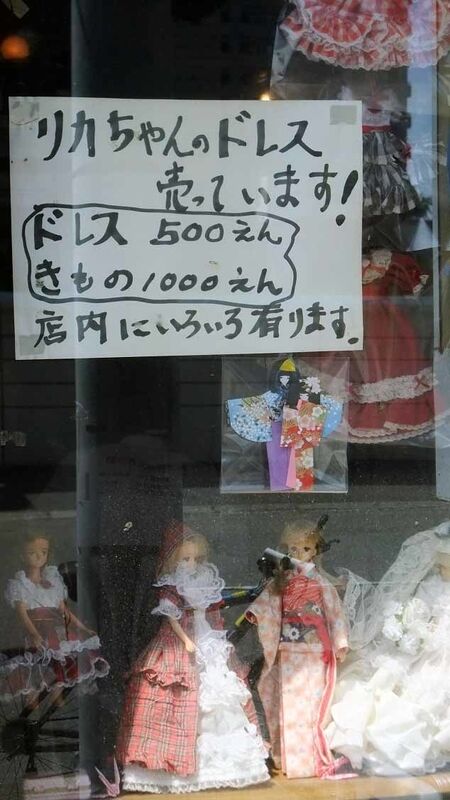 リカちゃんのドレス
売っています!
ドレス 500えん
きもの1000えん
店内にいろいろ有ります。